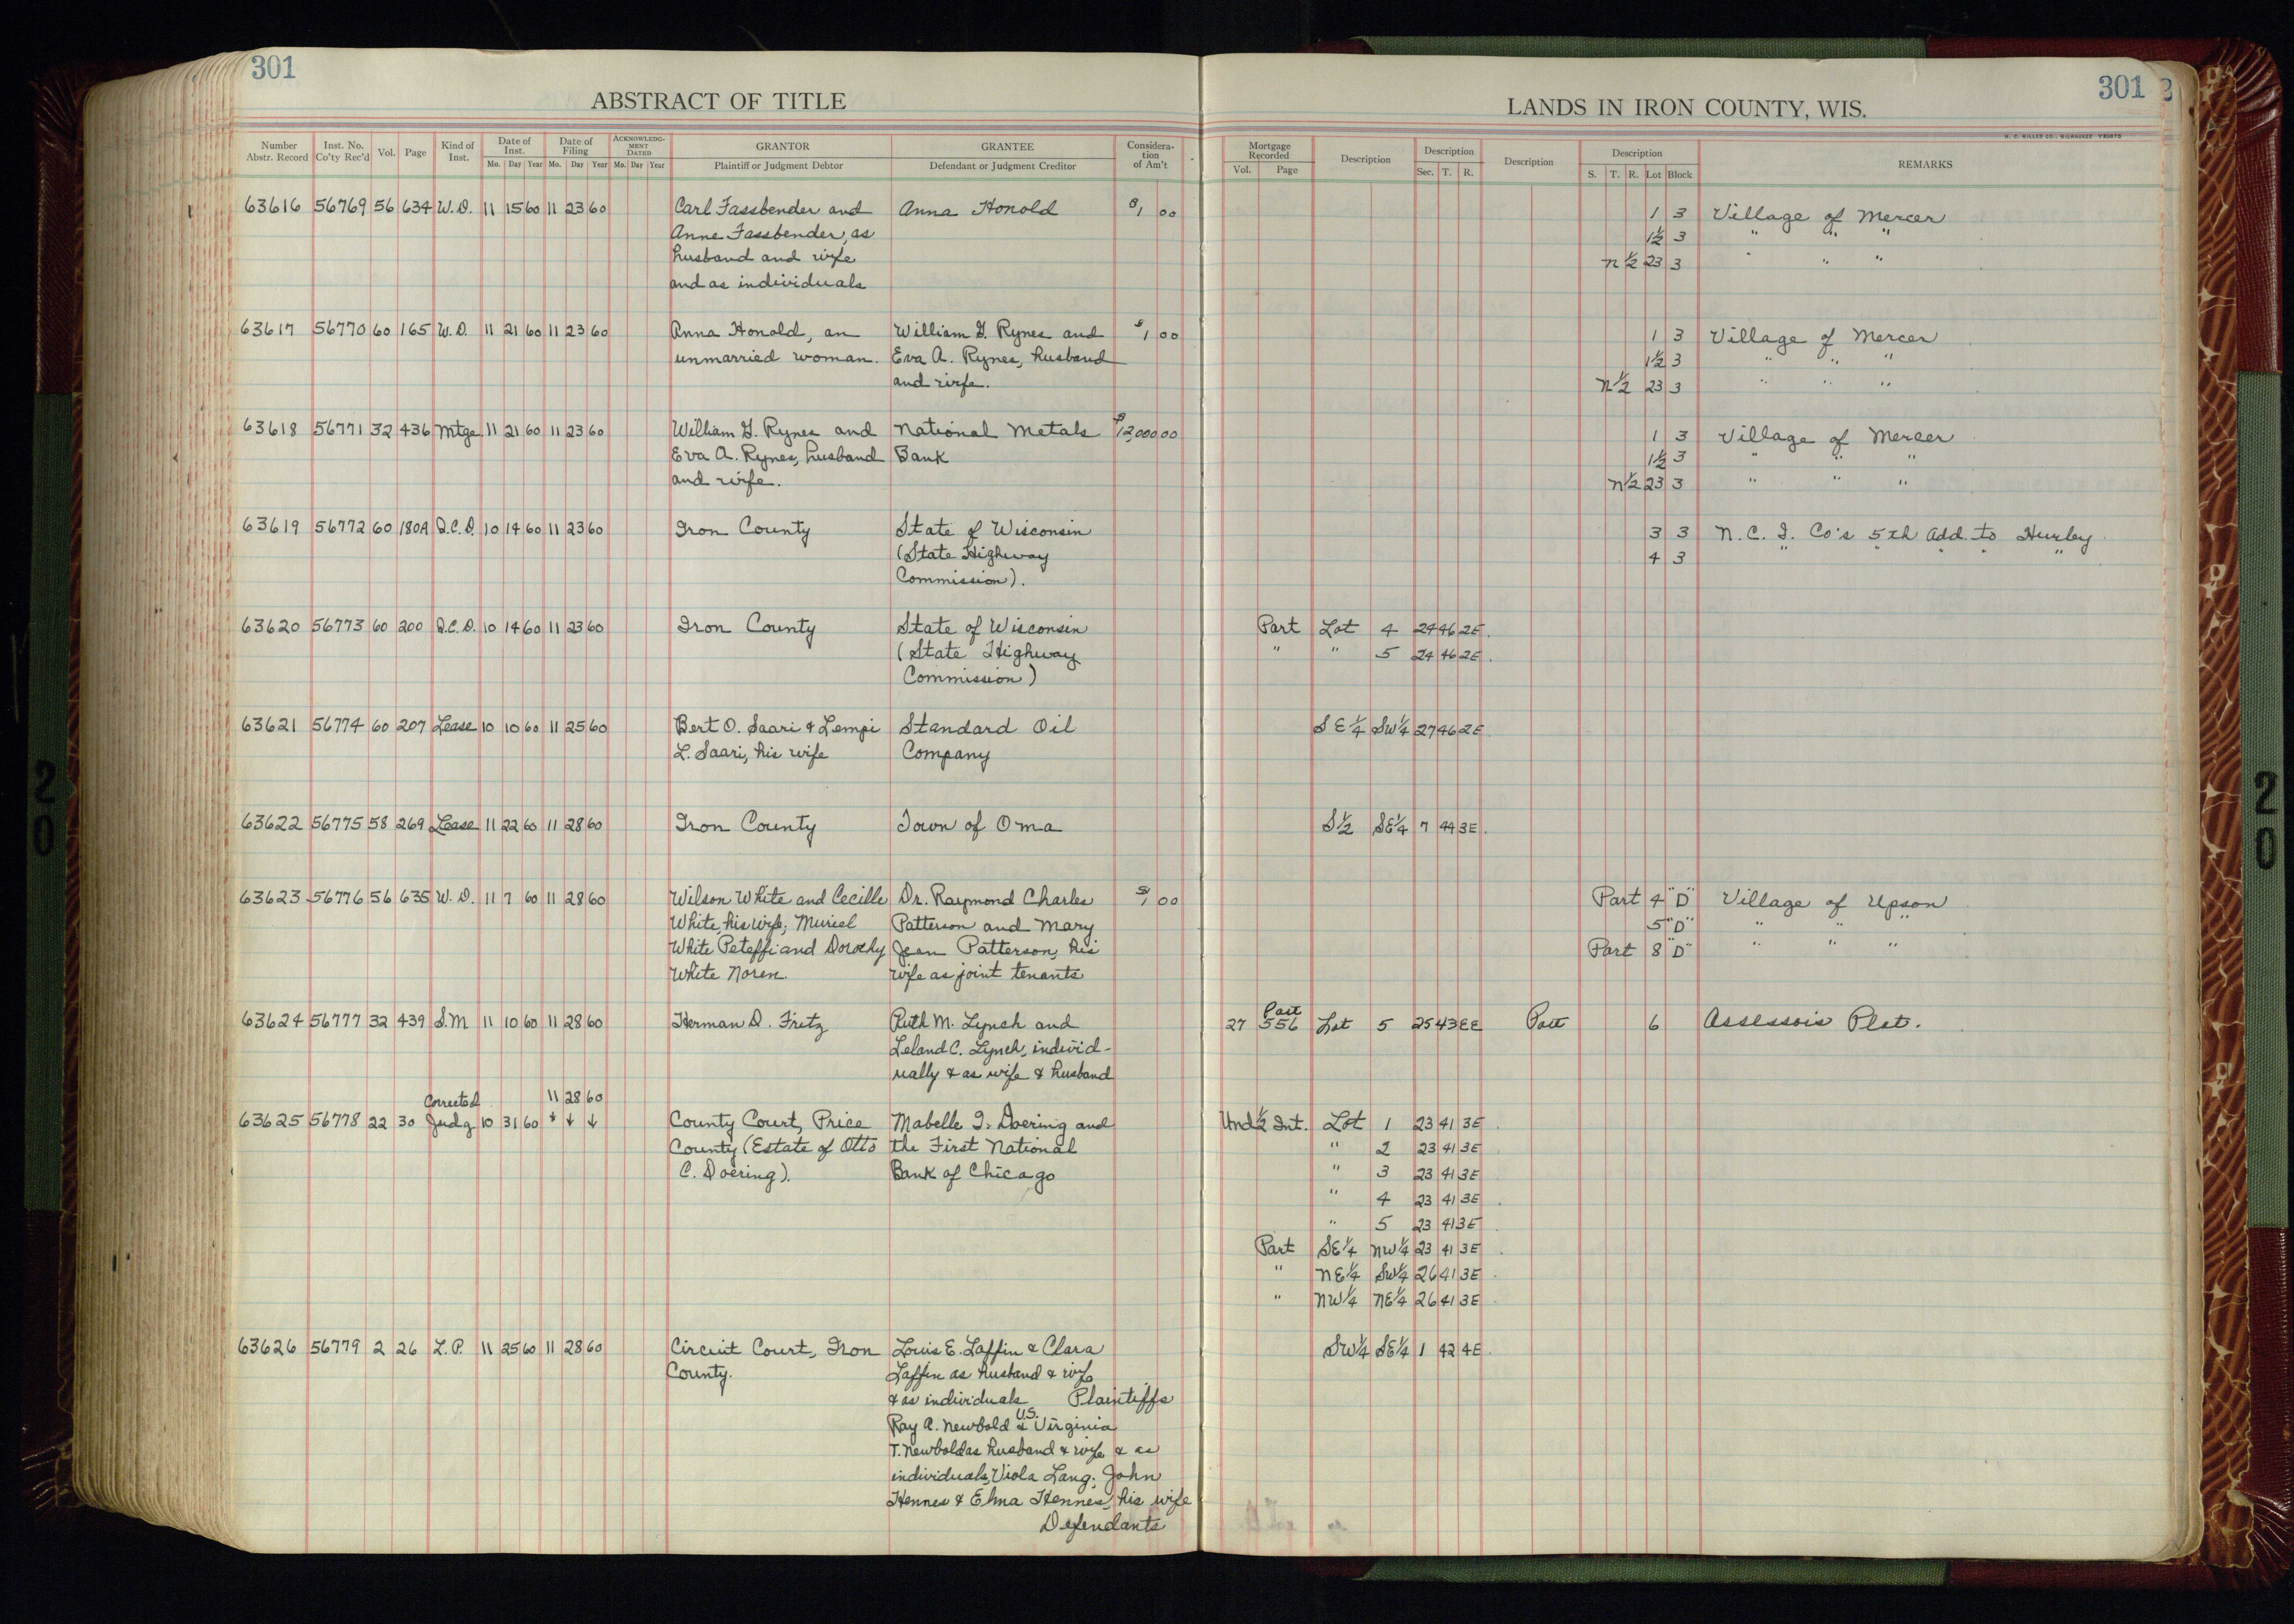 301
ABSTRACT OF TITLE
Number Abstr. Record
Inst. No. Co'ty Rec'd
Vol.
Page
Kind of Inst.
Date of Inst.
Mo. Day Year
Date of Filing
Mo. Day Year
ACKNOWLEDGMENT DATED
Mo. Day Year
GRANTOR
Plaintiff or Judgment Debtor
GRANTEE
Defendant or Judgment Creditor
Consideration of Am't
63616 56769 56 634 W.D. 11 15 60 11 23 60 Carl Fassbender and Anna Honold $1 00
Anne Fassbender, as
husband and wife
and as individuals
63617 56770 60 165 W.D. 11 21 60 11 23 60 Anna Honold, an William G. Rynes and $1 00
unmarried woman. Eva A. Rynes, husband
and wife.
63618 56771 32 436 Mtge 11 21 60 11 23 60 William G. Rynes and National Metals $12,000 00
Eva A. Rynes, husband Bank
and wife.
63619 56772 60 180A Q.C.D. 10 14 60 11 23 60 Iron County State of Wisconsin
(State Highway
Commission).
63620 56773 60 200 Q.C.D. 10 14 60 11 23 60 Iron County State of Wisconsin
(State Highway
Commission)
63621 56774 60 207 Lease 10 10 60 11 25 60 Bert O. Saari & Lempi Standard Oil
L. Saari, his wife Company
63622 56775 58 269 Lease 11 22 60 11 28 60 Iron County Town of Oma
63623 56776 56 635 W.D. 11 7 60 11 28 60 Wilson White and Cecille Dr. Raymond Charles $1 00
White, his wife; Muriel Patterson and Mary
White Peteffi and Dorothy Jean Patterson, his
White Noren. wife as joint tenants
63624 56777 32 439 S.M. 11 10 60 11 28 60 Herman D. Fritz Ruth M. Lynch and
Leland C. Lynch, individ-
ually & as wife & husband
Corrected 11 28 60
63625 56778 22 30 Judg 10 31 60 ↓ ↓ ↓ County Court, Price Mabelle I. Doering and
County (Estate of Otto the First National
C. Doering). Bank of Chicago
63626 56779 2 26 L.P. 11 25 60 11 28 60 Circuit Court, Iron Louis E. Laffin & Clara
County. Laffin as husband & wife
& as individuals Plaintiffs
U.S.
Ray A. Newbold & Virginia
T. Newbold as husband & wife & as
individuals, Viola Lang; John
Hennes & Elma Hennes, his wife
Defendants
301
LANDS IN IRON COUNTY, WIS.
H. C. MILLER CO., MILWAUKEE
Mortgage Recorded
Vol. Page
Description
Description
Sec. T. R.
Description
Description
S. T. R. Lot Block
REMARKS
1 3 Village of Mercer
1½ 3 " " "
N ½ 23 3 " " "
1 3 Village of Mercer
1½ 3 " " "
N ½ 23 3 " " "
1 3 Village of Mercer
1½ 3 " " "
N½ 23 3 " " "
3 3 N.C.I. Co's 5th Add. to Hurley
4 3 " " " "
Part Lot 4 24 46 2E.
" " 5 24 46 2E.
SE¼ SW¼ 27 46 2E.
S½ SE¼ 7 44 3E.
Part 4 "D" Village of Upson
5 "D" " " "
Part 8 "D" " " "
Part
27 556 Lot 5 25 43 EE Part 6 Assessors Plat.
Und ½ Int. Lot 1 23 41 3E
" 2 23 41 3E
" 3 23 41 3E
" 4 23 41 3E
" 5 23 41 3E
Part SE¼ NW¼ 23 41 3E
" NE¼ SW¼ 26 41 3E
" NW¼ NE¼ 26 41 3E
SW¼ SE¼ 1 42 4E.
20
20